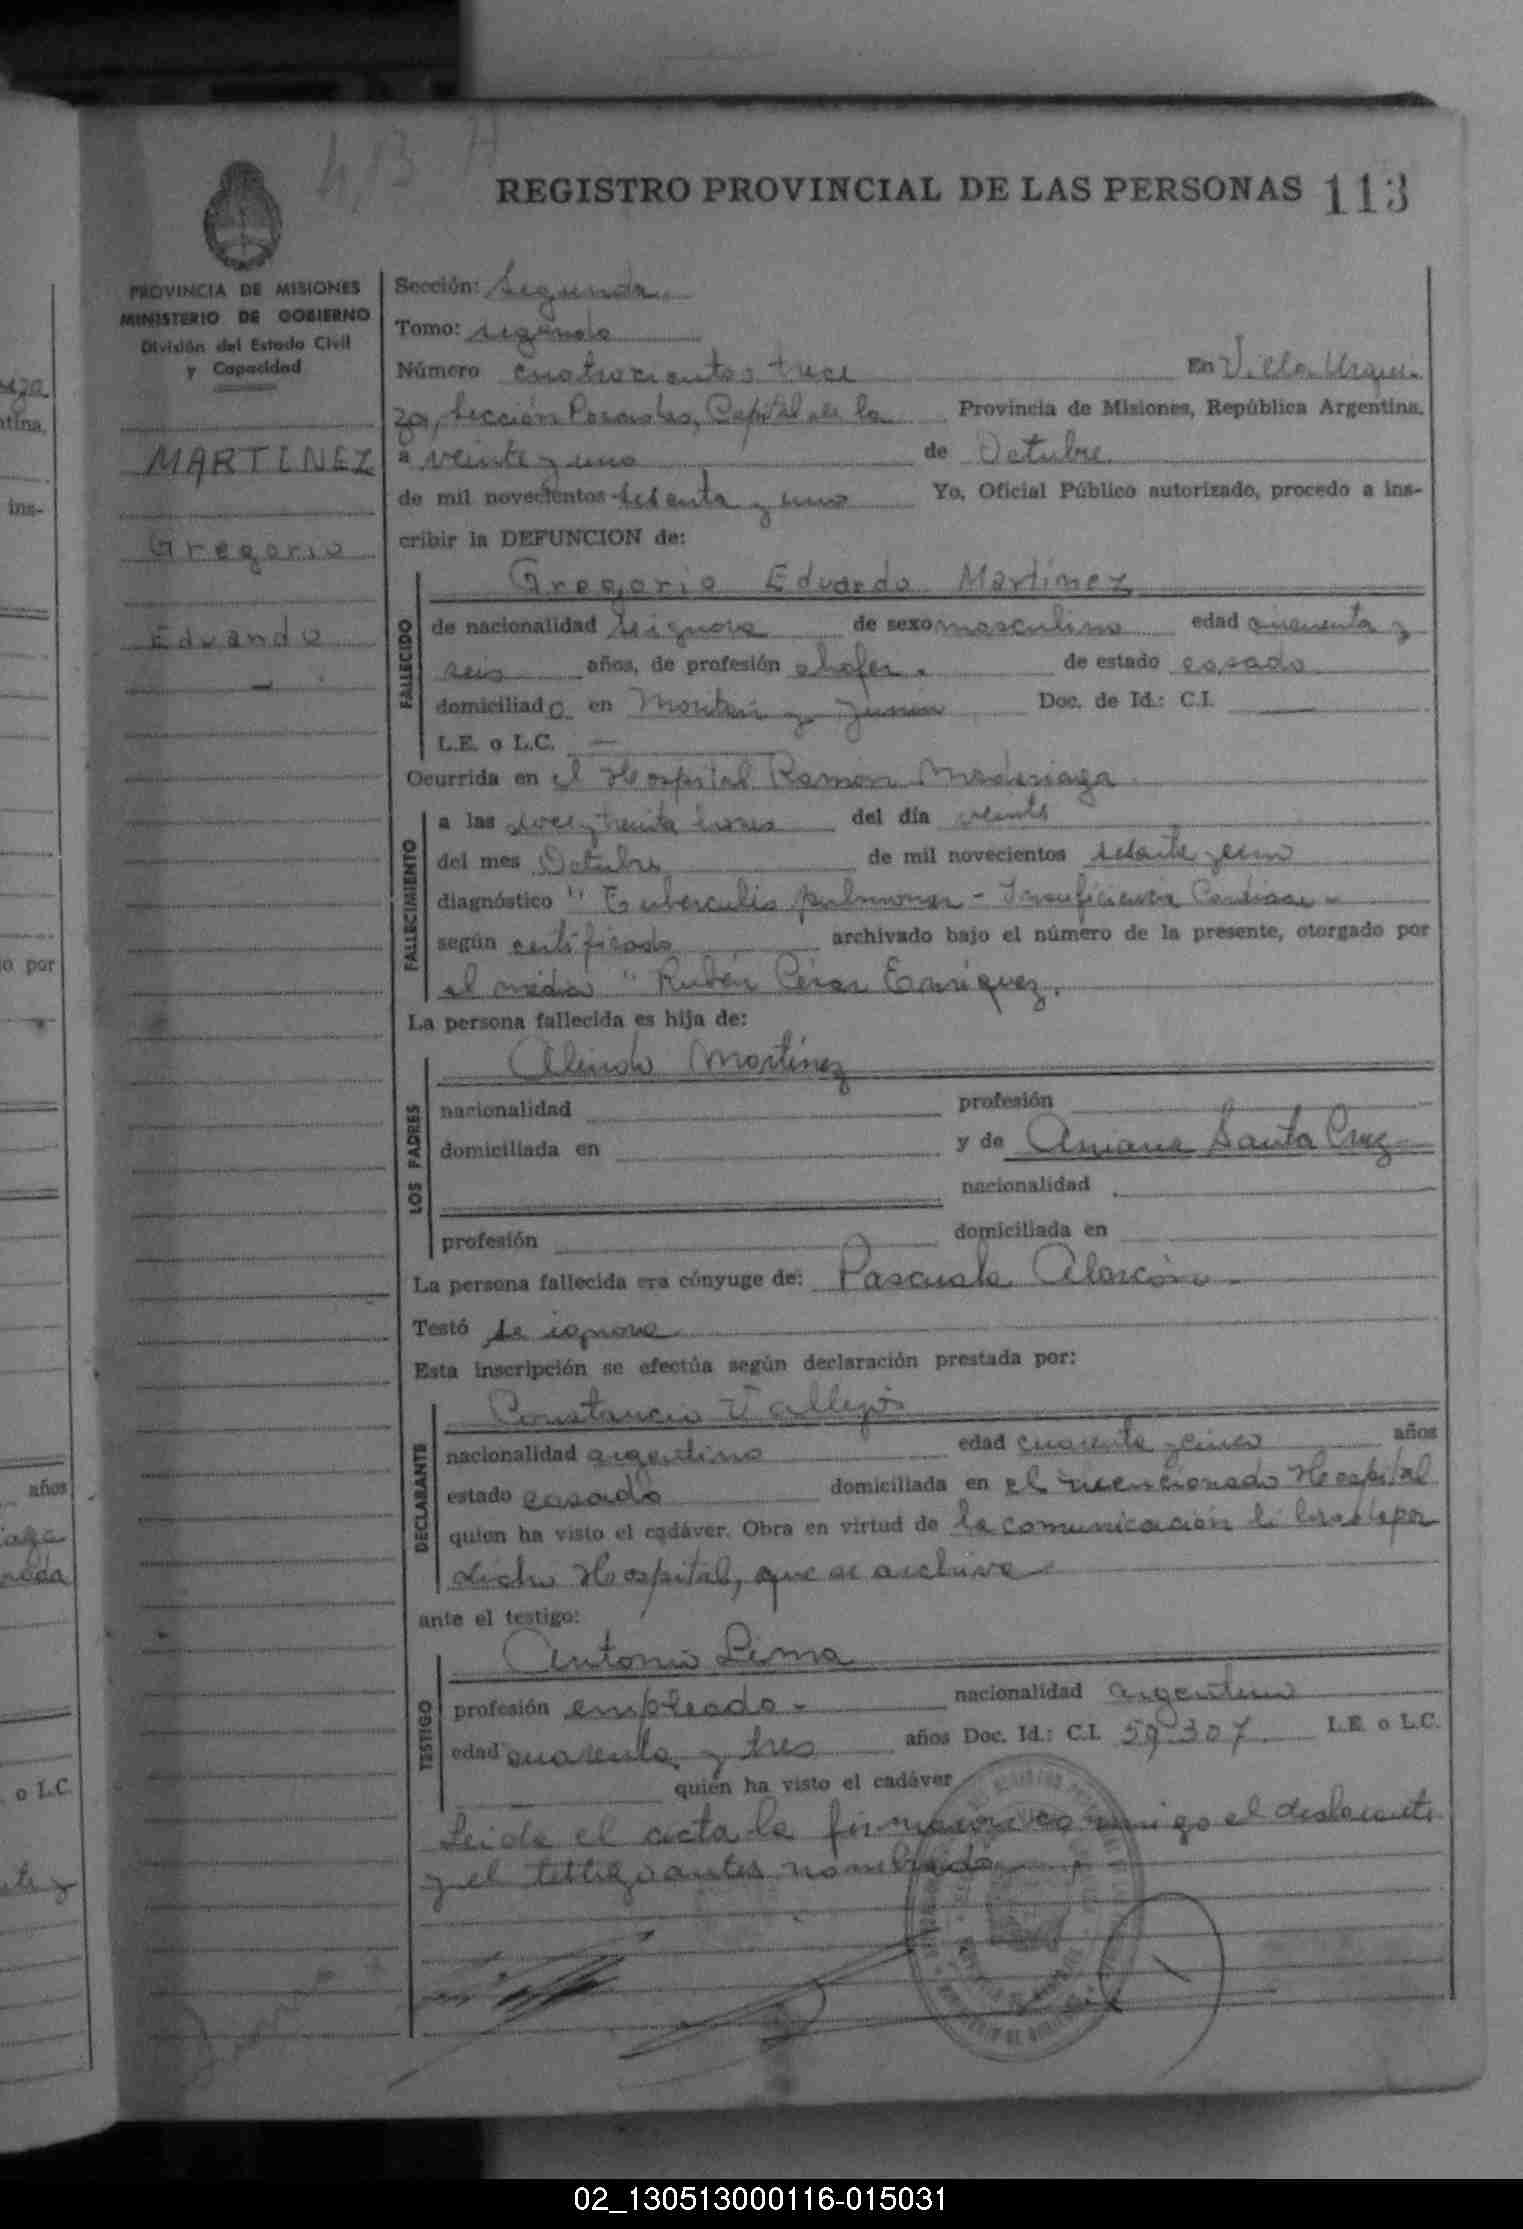 413 A
REGISTRO PROVINCIAL DE LAS PERSONAS 113
PROVINCIA DE MISIONES
MINISTERIO DE GOBIERNO
División del Estado Civil
y Capacidad
MARTINEZ
Gregorio
Eduardo
Sección: Segunda
Tomo: segundo
Número cuatrocientos trece En Villa Urqui-
za, Sección Posadas, Capital de la Provincia de Misiones, República Argentina,
a veinte y uno de Octubre
de mil novecientos setenta y uno Yo, Oficial Público autorizado, procedo a ins-
cribir la DEFUNCION de:
Gregorio Eduardo Martínez
FALLECIDO
de nacionalidad se ignora de sexo masculino edad cincuenta y
seis años, de profesión chofer. de estado casado
domiciliado en y Junin Doc. de Id.: C.I. —
L.E. o L.C. —
Ocurrida en el Hospital Ramón Madariaga
FALLECIMIENTO
a las doce y treinta horas del día veinte
del mes Octubre de mil novecientos setenta y uno
diagnóstico " Tuberculis pulmonar - Insuficiencia Cardiaca -
según certificado archivado bajo el número de la presente, otorgado por
el médico " Rubén César Enriquez.
La persona fallecida es hija de:
LOS PADRES
Martínez
nacionalidad profesión
domiciliada en y de Santa Cruz
nacionalidad
profesión domiciliada en
La persona fallecida era cónyuge de: Pascuala Alarcón -
Testó se ignora
Esta inscripción se efectúa según declaración prestada por:
Constancio Vallejos
DECLARANTE
nacionalidad argentino edad cuarenta y cinco años
estado casado domiciliada en el mencionado Hospital
quien ha visto el cadáver. Obra en virtud de la comunicación por
dicho Hospital, que se archiva -
ante el testigo:
Antonio Lima
TESTIGO
profesión empleado - nacionalidad argentino
edad cuarenta y tres años Doc. Id.: C.I. 59.307 L.E. o L.C.
quién ha visto el cadáver
Leida el acta la firmaron conmigo el declarante
y el testigo antes nombrado
02_130513000116-015031